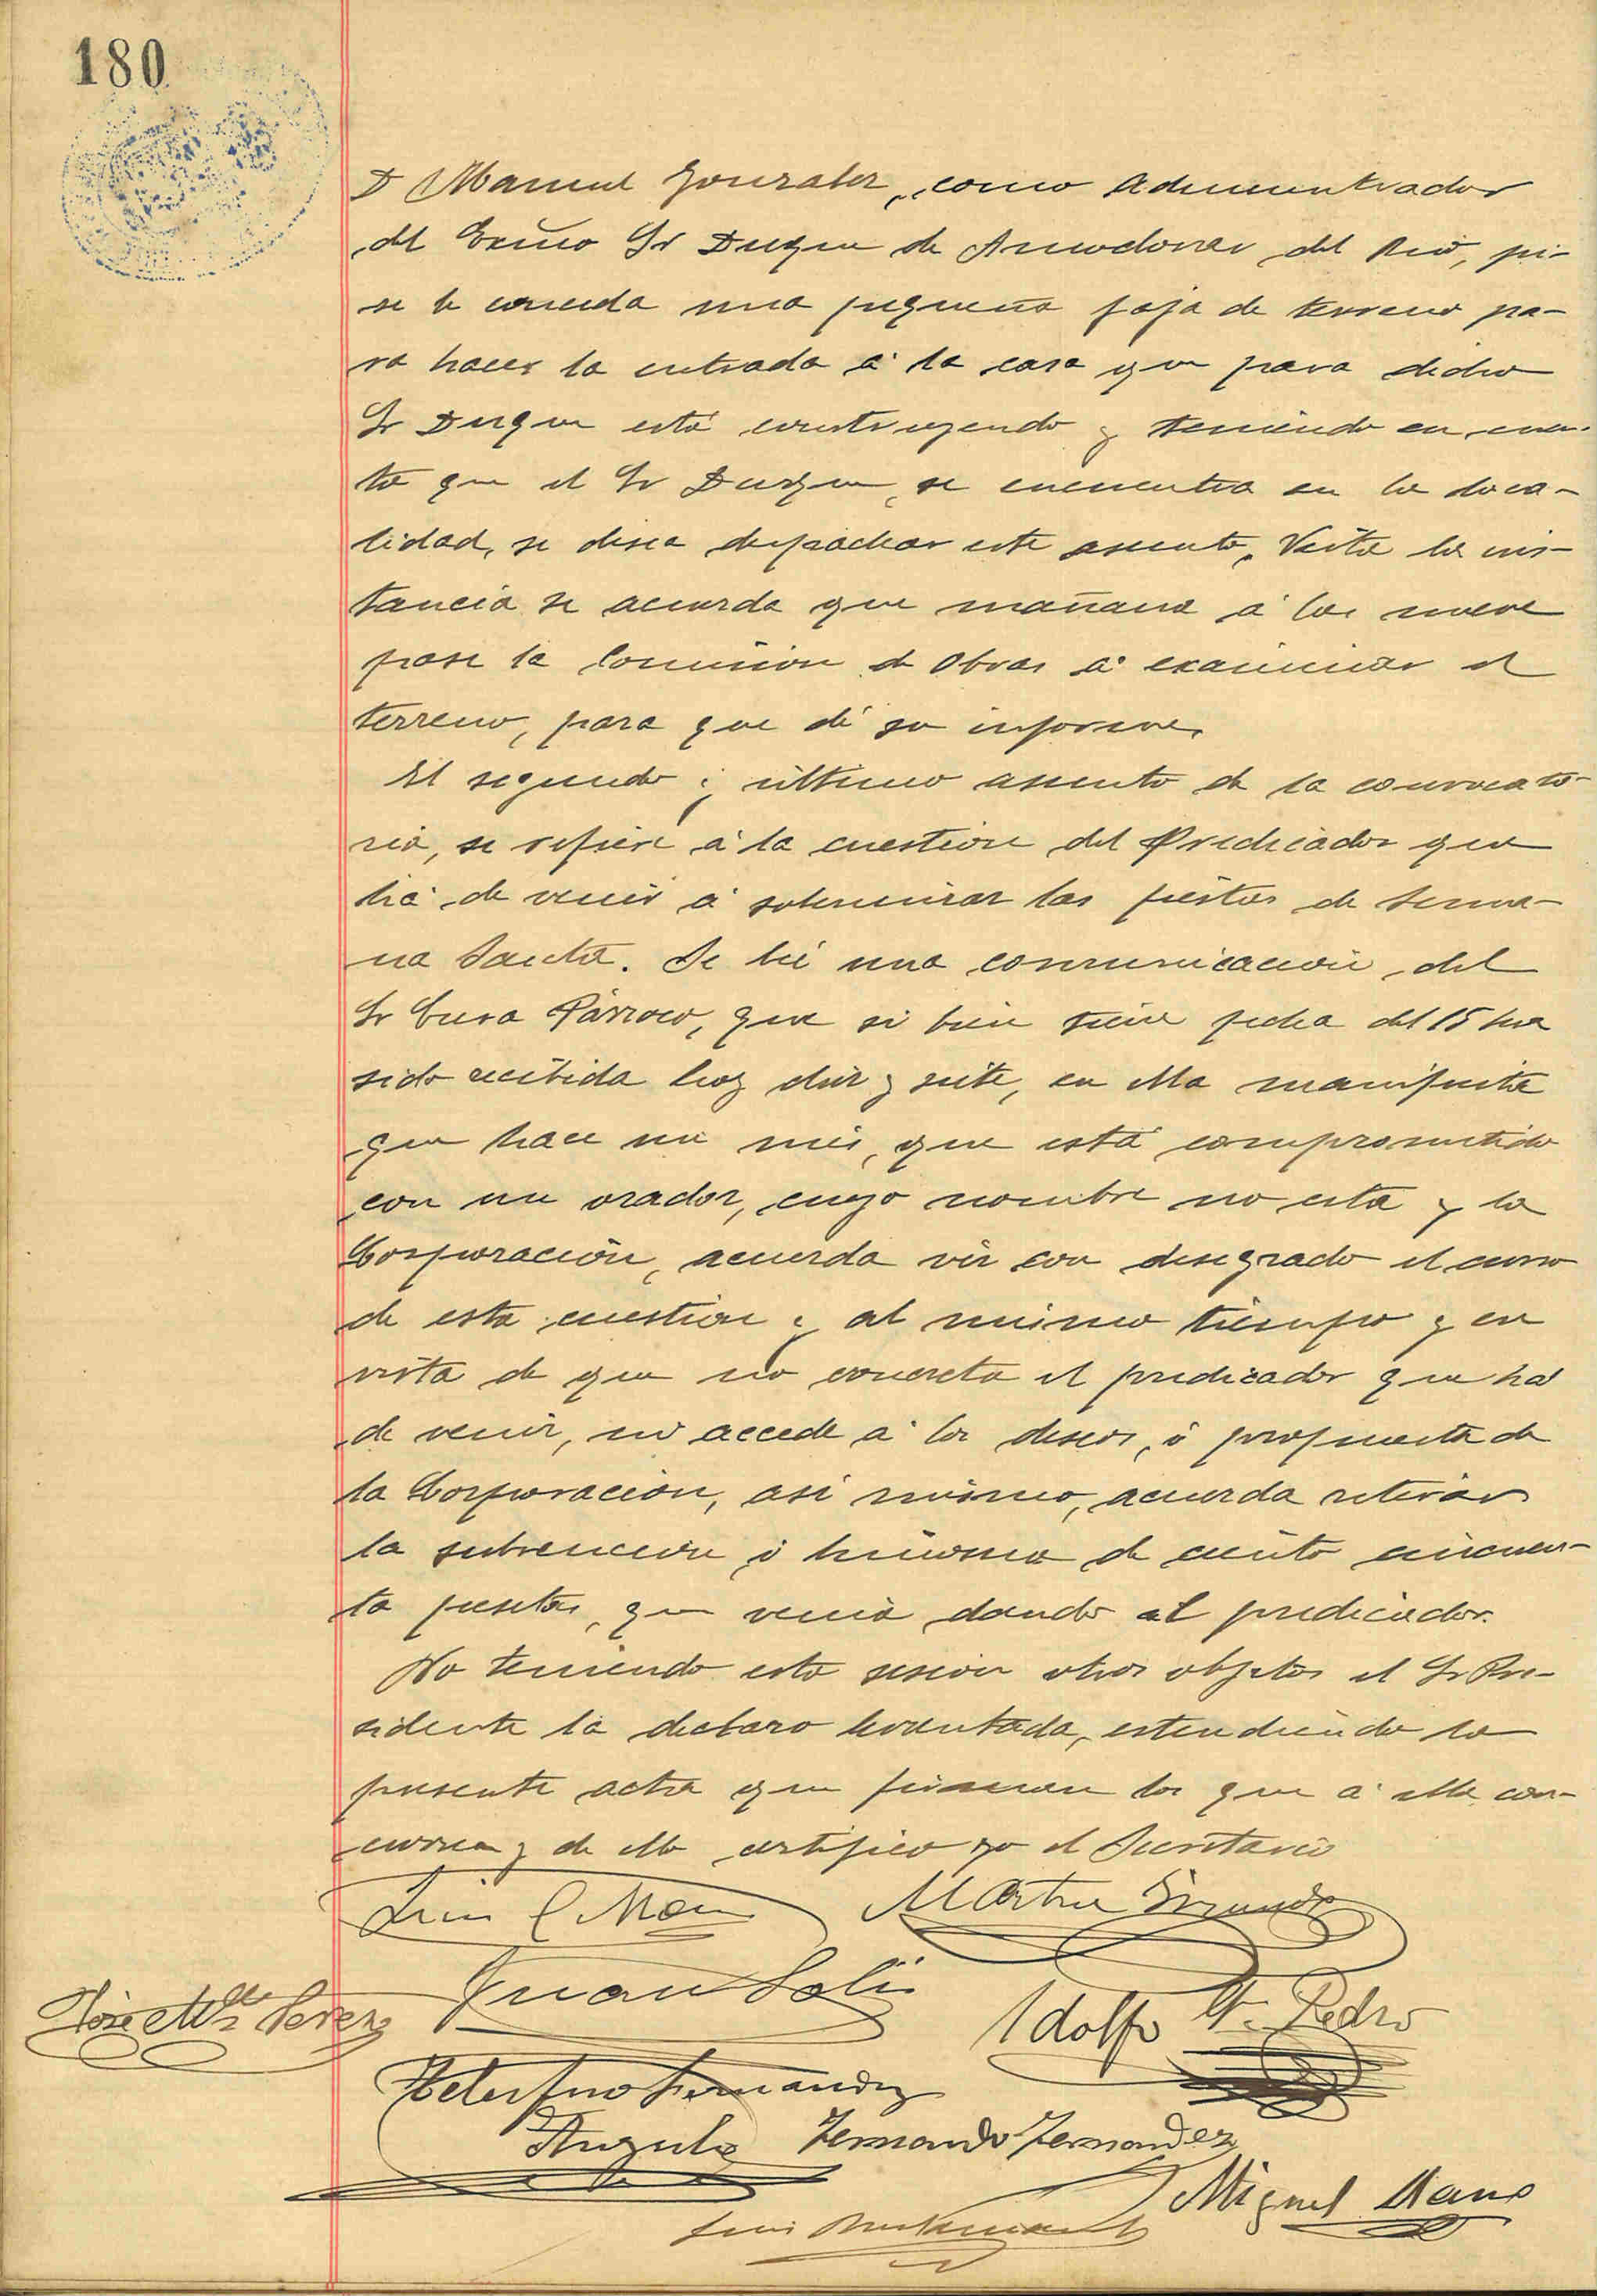 180
D Manuel Gonzalez, como Administrador
del Excmo Sr Duque de Almodovar del Rio, pi-
se le conceda una pequeña faja de terreno pa-
ra hacer la entrada á la casa que para dicho
Sr Duque está construyendo y teniendo en cuen-
ta que el Sr Duque, se encuentra en la loca-
lidad, se desea despachar este asunto. Vista la ins-
tancia se acuerda que mañana á las nueve
pase la Comision de Obras á examinar el
terreno, para que dé su informe.
El segundo y último asunto de la convocato-
ria, se refiere á la cuestion del Predicador que
há de venir á solemnizar las fiestas de Sema-
na Santa. Se leé una comunicación del
Sr Cura Párroco, que si bien tiene fecha del 15 ha
sido recibida hoy diez y siete, en ella manifiesta
que hace un mes, que está comprometido
con un orador, cuyo nombre no cita y la
Corporación, acuerda vér con desagrado el curso
de esta cuestion y al mismo tiempo y en
vista de que no concreta el predicador que há
de venir, ni accede á los deseos, ó propuesta de
la Corporación, así mismo, acuerda retirar
la subvencion ó limosna de ciento cincuen-
ta pesetas, que venia dando al predicador.
No teniendo esta sesion otros objetos el Sr Pre-
sidente la declaro levantada, estendiendo la
presente acta que firman los que á ella con-
curren y de ella certifico yo el Secretario
Juan Solis
José Mª Perez
Adolfo G. Pedro
Telesforo Fernández
Angulo Fernando Fernandez
Miguel Llano
Luis Bustamante